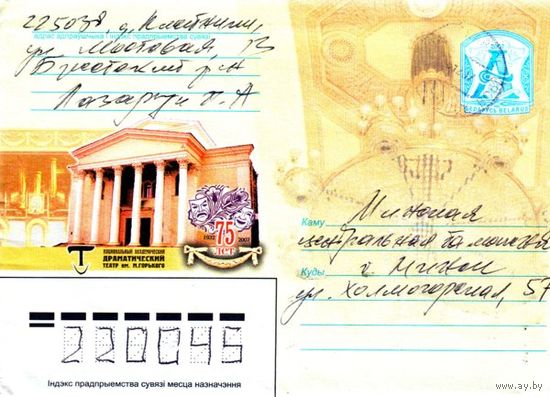 225038 д. Клейники,
адрас адпраўшчыка і індэкс прадпрыемства сувязі
ул. Мостовая, 13
Брестский р-н
Лазарук П. А
А
БЕЛАРУСЬ BELARUS
75
1932 2007
ЛЕТ
НАЦИОНАЛЬНЫЙ АКАДЕМИЧЕСКИЙ
ДРАМАТИЧЕСКИЙ
ТЕАТР ИМ. М.ГОРЬКОГО
Каму Минская
центральная таможня
Куды г. Минск
ул. Холмогорская, 57
220045
Індэкс прадпрыемства сувязі месца назначэння
www.ay.by